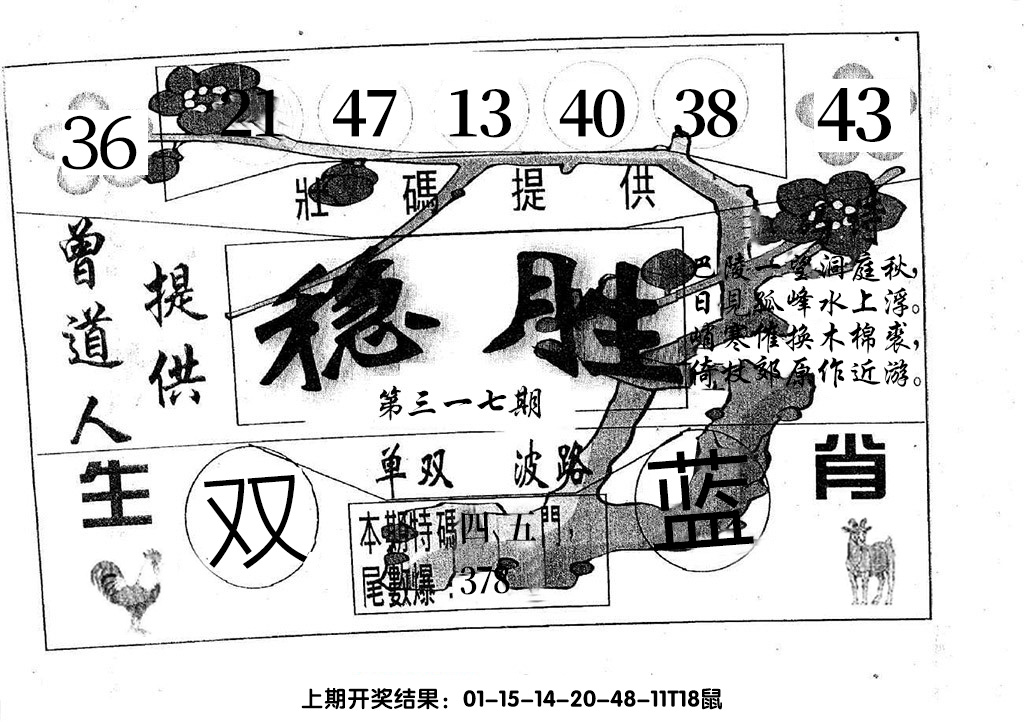 36 21 47 13 40 38 43
壯碼提供
曾道人
提供
稳胜
第三一七期
巴陵一望洞庭秋,
日見孤峰水上浮。
寒催换木棉裘,
倚杖郊原作近游。
单双 波路
生肖
双
蓝
本期特碼四、五門,
尾數爆:378
上期开奖结果：01-15-14-20-48-11T18鼠